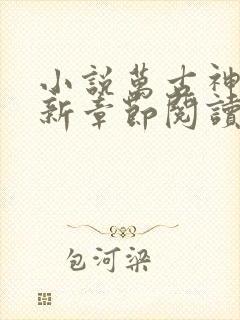 小説萬古神
新章節閱讀
包河梁